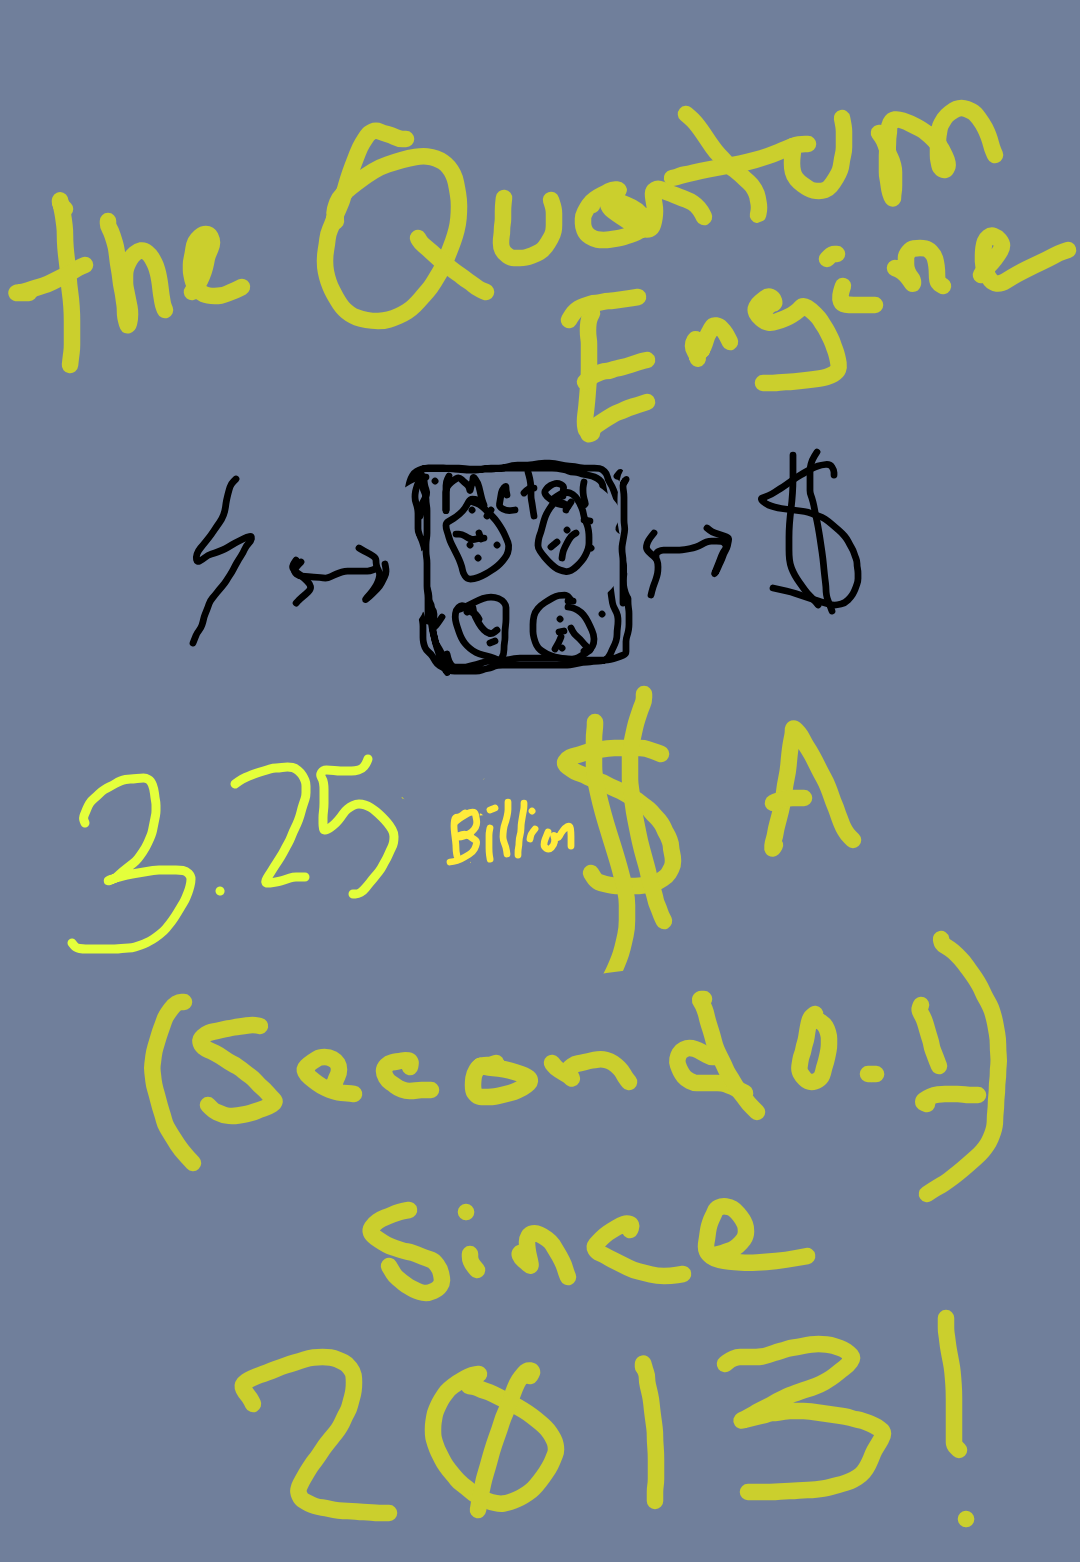 the Quantum
Engine
Meter
$
3.25 Billion $ A
(Second 0.1)
since
2013!